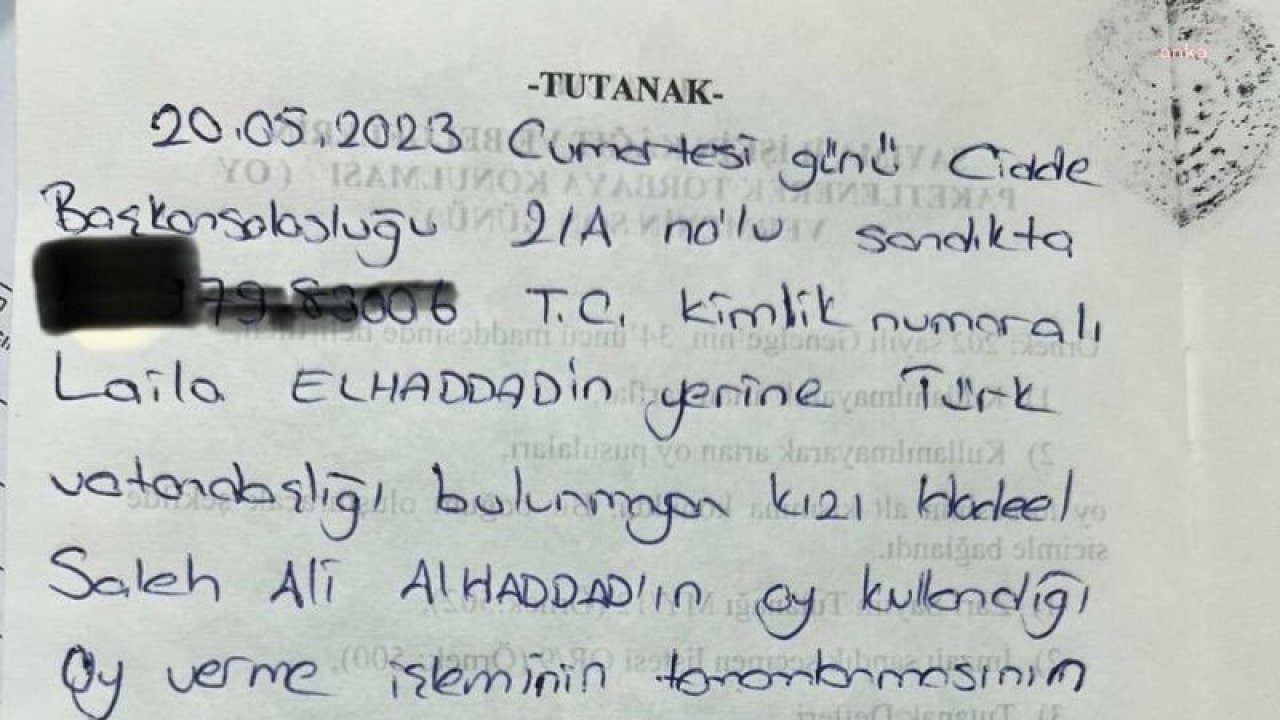 anka
-TUTANAK-
20.05.2023 Cumartesi günü Cidde
Başkonsolosluğu 21A no'lu sandıkta
T.C. kimlik numaralı
Laila ELHADDADin yerine Türk
vatandaşlığı bulunmayan kızı Hadeel
Saleh Ali AlHADDAD'ın oy kullandığı
Oy verme işleminin tamamlanmasının